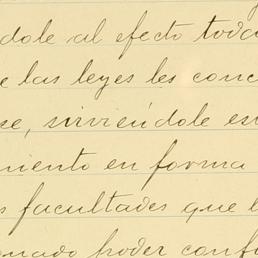 dole al efecto toda
e las leyes les conc
se, sirviéndole es
miento en forma
s facultades que l
onado poder conf